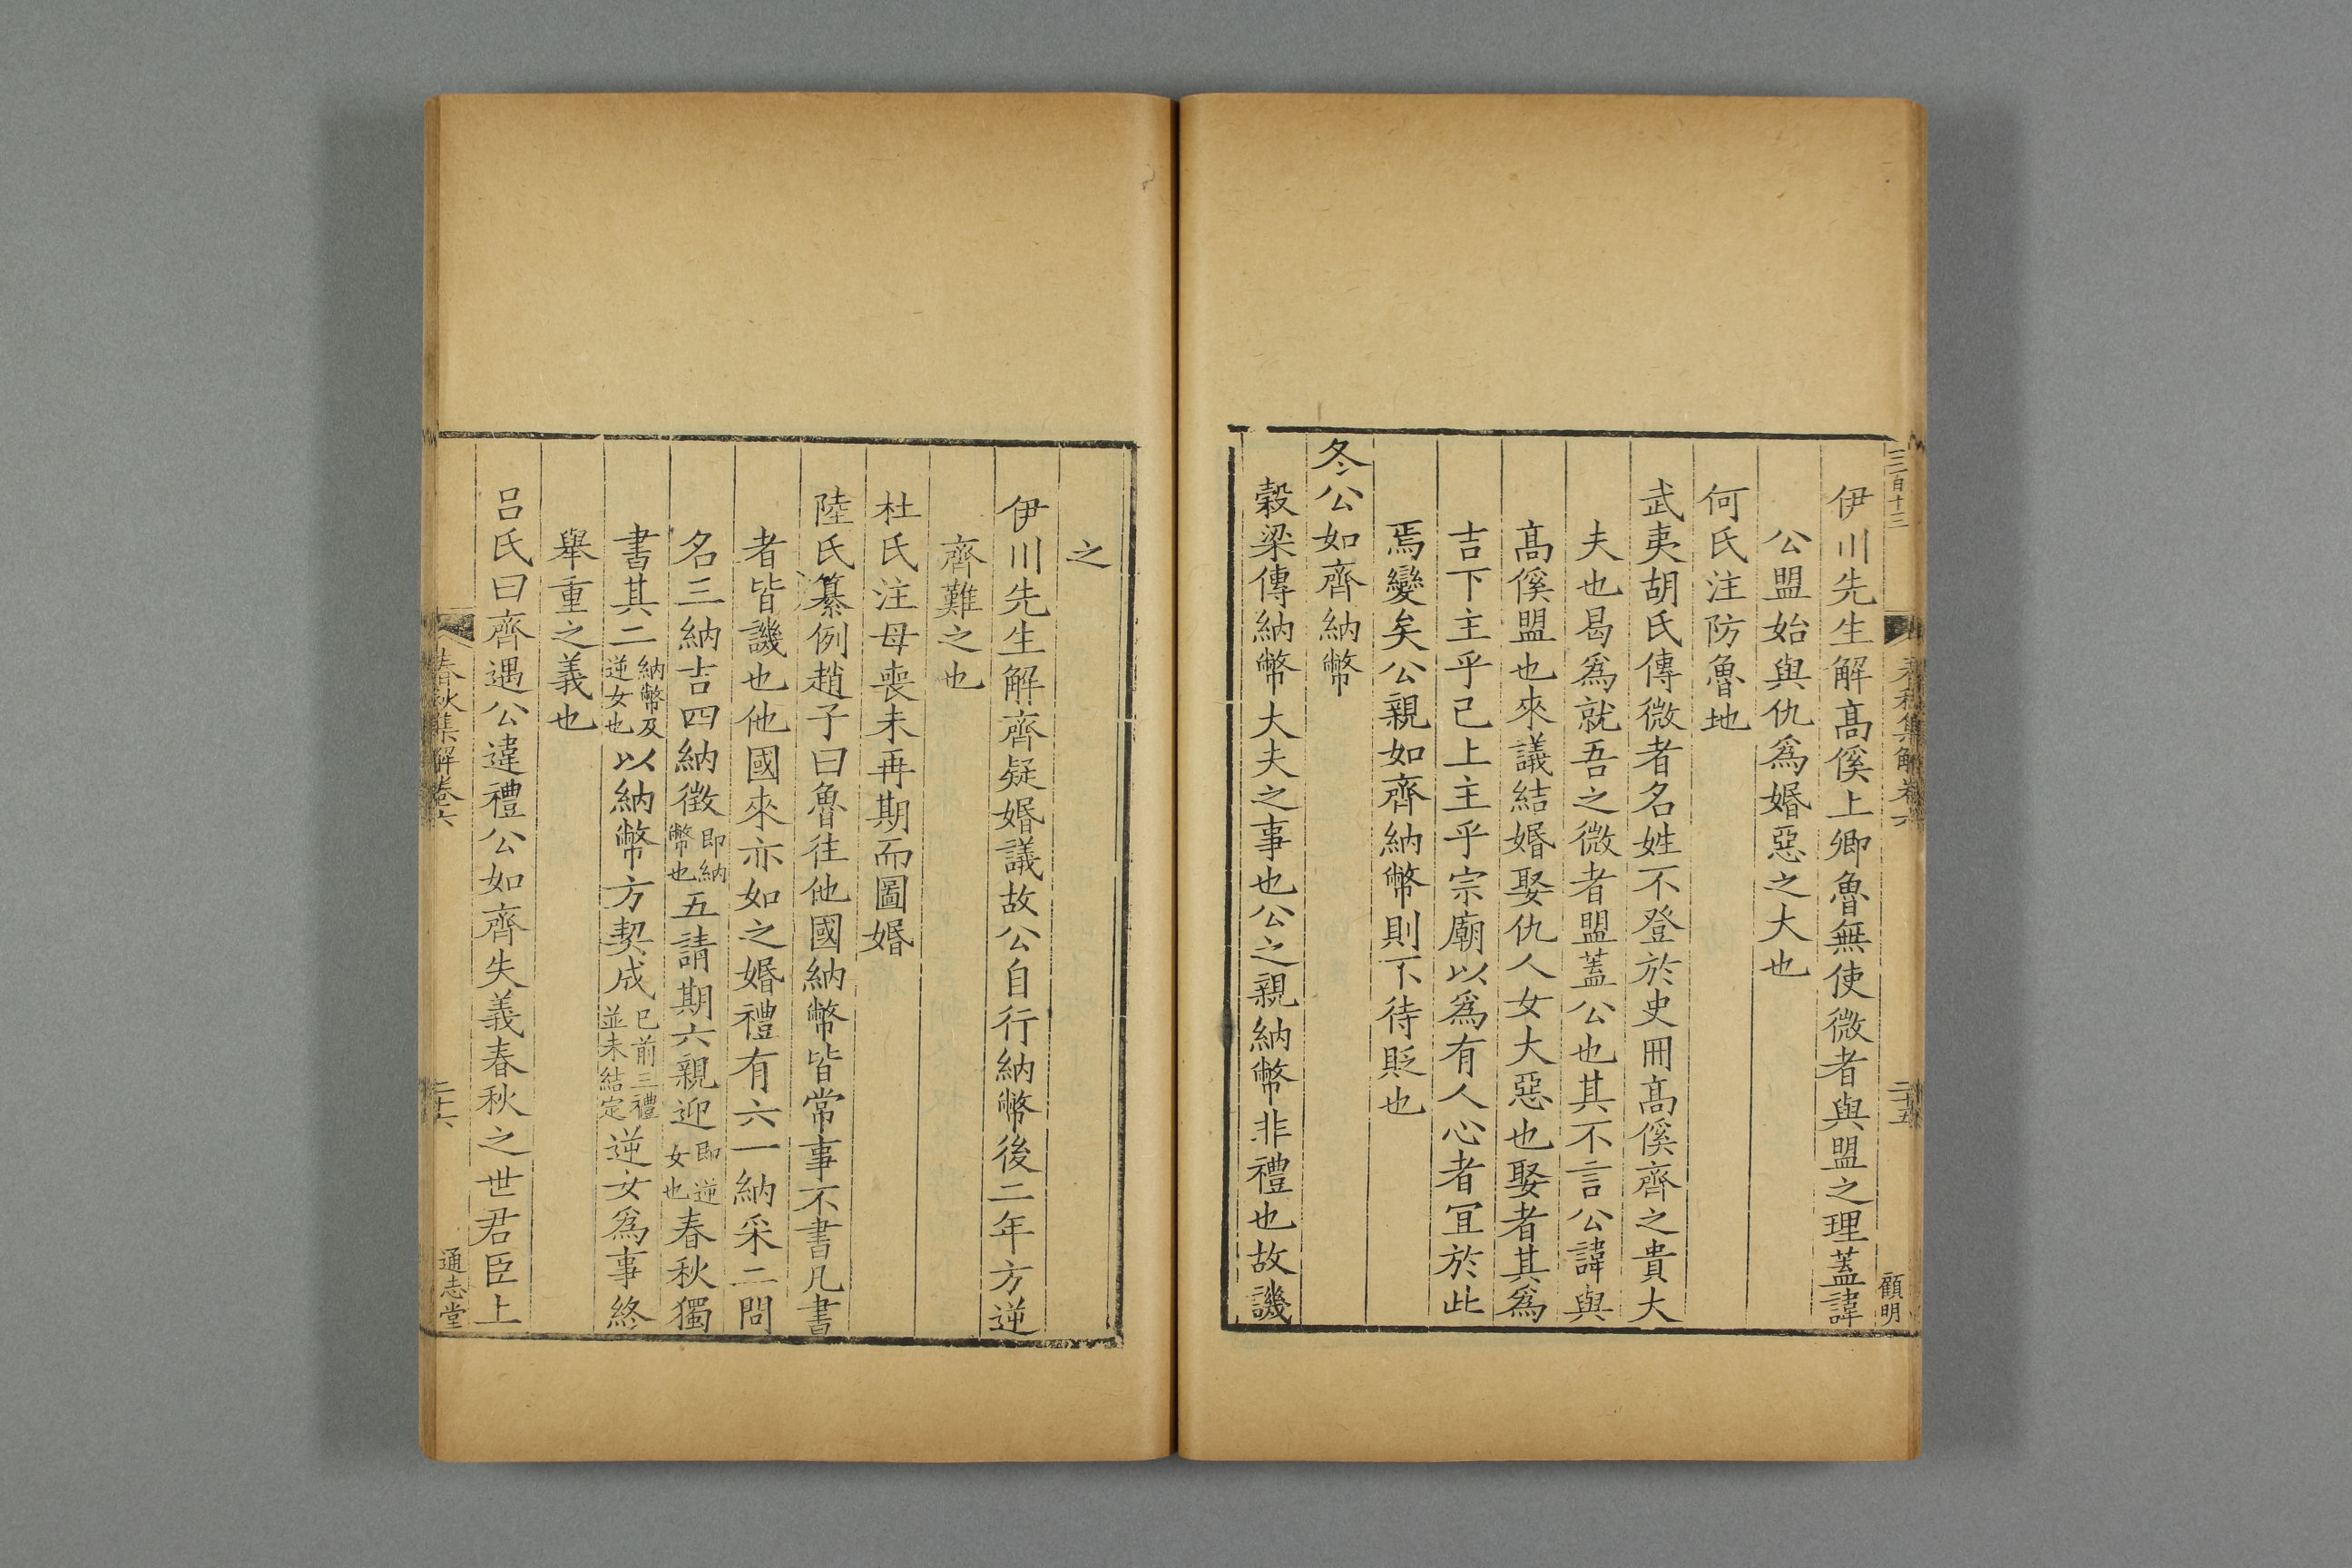 三百十三
春秋集解卷六
二十五
顧明
伊川先生解高傒上卿魯無使微者與盟之理蓋諱
公盟始與仇爲婚惡之大也
何氏注防魯地
武夷胡氏傳微者名姓不登於史冊高傒齊之貴大
夫也曷爲就吾之微者盟蓋公也其不言公諱與
高傒盟也來議結婚娶仇人女大惡也娶者其爲
吉下主乎己上主乎宗廟以爲有人心者冝於此
焉變矣公親如齊納幣則不待貶也
冬公如齊納幣
榖梁傳納幣大夫之事也公之親納幣非禮也故譏
之
伊川先生解齊疑婚議故公自行納幣後二年方逆
齊難之也
杜氏注母喪未再期而圖婚
陸氏纂例趙子曰魯往他國納幣皆常事不書凡書
者皆譏也他國來亦如之婚禮有六一納采二問
名三納吉四納徵即納幣也五請期六親迎即逆女也春秋獨
書其二納幣及逆女也以納幣方契成已前三禮並未結定逆女爲事終
舉重之義也
吕氏曰齊遇公違禮公如齊失義春秋之世君臣上
春秋集解卷六
二十六
通志堂